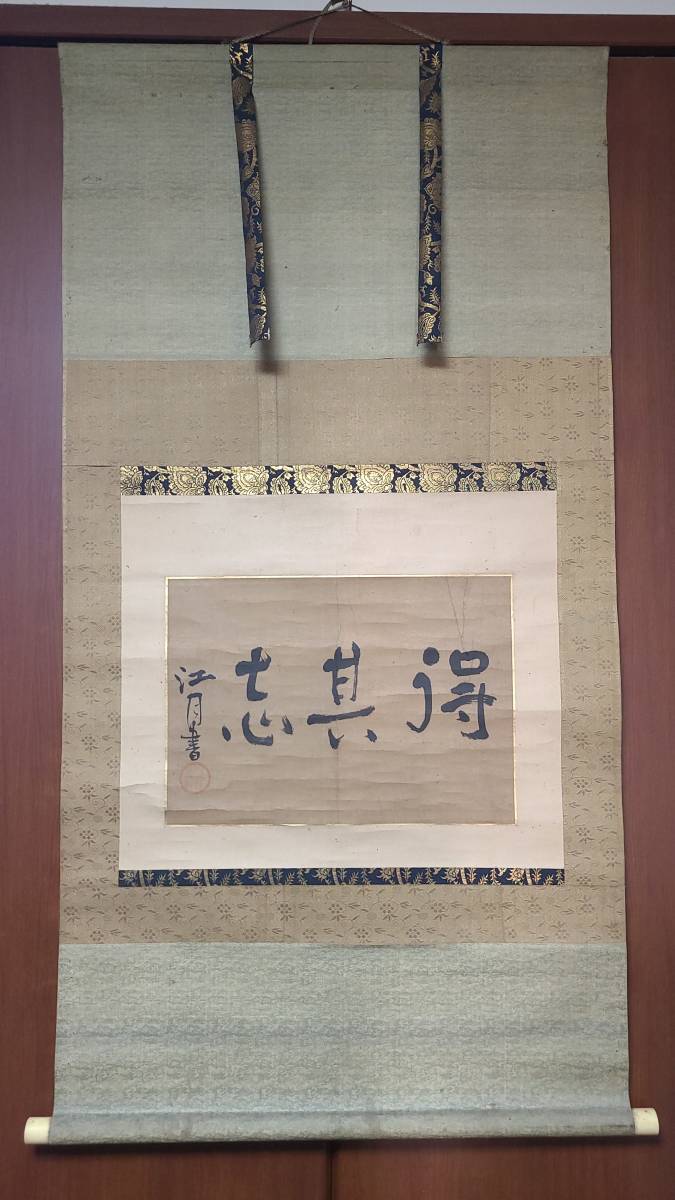 得其志
江月書